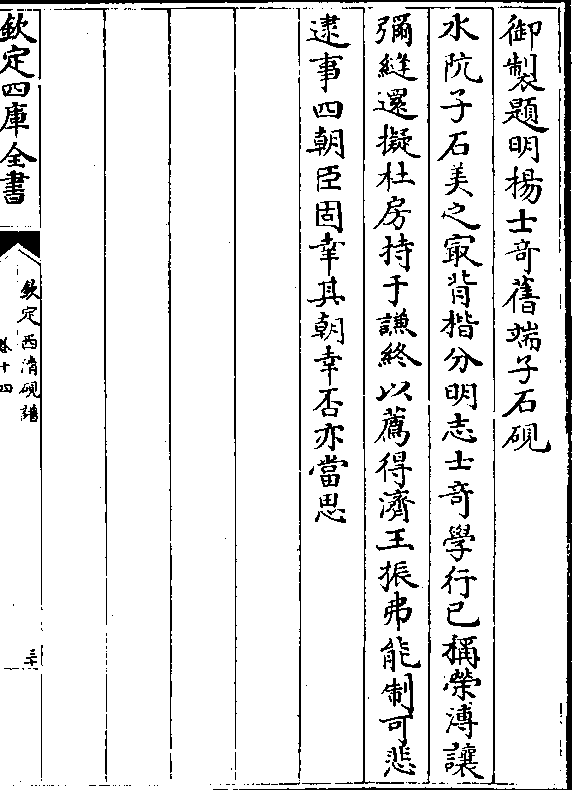 御製題明楊士竒舊端子石硯
水阬子石美之㝡背楷分明志士竒學行已稱榮溥讓
彌縫還擬杜房持于謙終以薦得濟王振弗能制可悲
逮事四朝臣固幸其朝幸否亦當思
欽定四庫全書
欽定西清硯譜
卷十四
三十